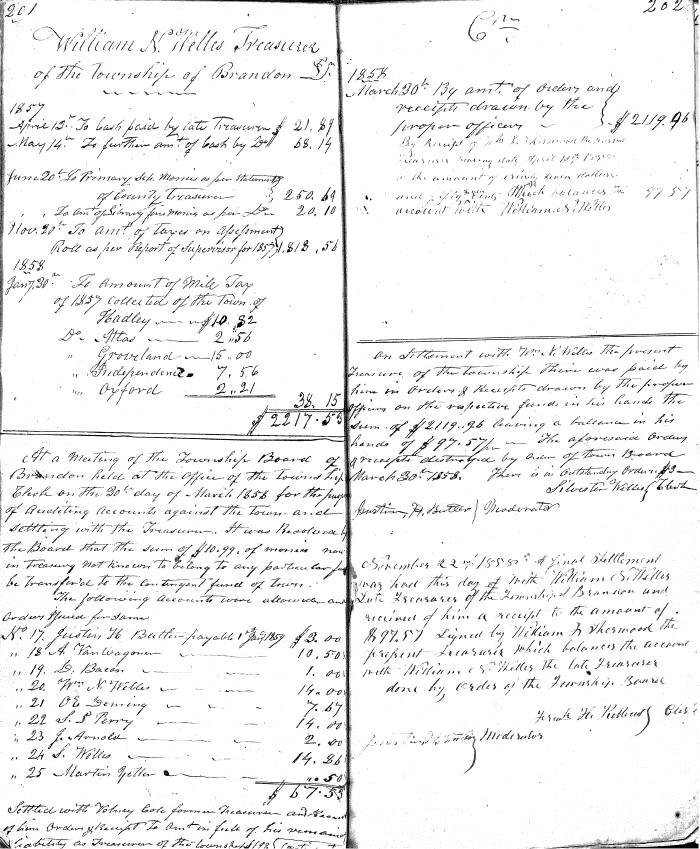 201
William N. Welles Treasurer
of the Township of Brandon Dr.
1857
April 13th To Cash paid by late Treasurer $ 21.89
May 14th To further amt of Cash by Do 68.14
June 20th To Primary Sch. Monies as per Statement
of County Treasurer } 250.69
" " To Amt of Library fine Monies as per Do 20.10
Nov. 20th To Amt. of taxes on assessment
Roll as per Report of Supervisor for 1857 } 1,818.56
1858
Jany. 20th To Amount of Mill Tax
of 1857 collected of the Town of
Hadley $10.82
Do Atlas 2.56
" Groveland 15.00
" Independence 7.56
" Oxford 2.21
38.15
$ 2217.53
At a Meeting of the Township Board of
Brandon held at the Office of the township
Clerk on the 30th day of March 1858 for the
of Auditing Accounts against the town and
settling with the Treasurer. It was Resolved by
the Board that the sum of $10.99 of monies now
in treasury not known to belong to any particular
be transferred to the contingent fund of town.
The following accounts were allowed and
Orders issued for same
No 17. Justin H Butler payable 1st Jany 1859 $3.00
" 18 A VanWagoner 10.50
" 19. D. Bacon 1.00
" 20 Wm N Welles 14.00
" 21 O E Deming 7.67
" 22 S. S Perry 14.00
" 23 J. Arnold 2.00
" 24 S. Welles 14.86
" 25 Martin Zeller .50
$ 67.53
Settled with Volney Cole former Treasurer and
of him Orders & Receipt To Amt in full of his
liability as Treasurer of the township
202
Cr.
1858
March 30th By amt. of Orders and
receipts drawn by the
proper officers } $2119.96
By Receipt of
Treasurer bearing date
to the amount of ninety seven dollars
and fifty Which balances the
account with William N. Welles 97.57
On Settlement with Wm N. Welles the present
Treasurer of the township there was paid by
him in Orders & Receipts drawn by the proper
Officers on the respective funds in his hands the
sum of $2119.96 leaving a ballance in his
hands of $97.57 The aforesaid Orders
& receipts destroyed by order of town Board
March 30th 1858. There is in Outstanding Orders $3
Silvester Welles } Clerk
Justin H. Butler } Moderator
November 22nd 1858 A final Settlement
was had this day of With William N. Welles
Late Treasurer of the Township of Brandon and
received of him a receipt to the amount of
$97.57 Signed by William Sherwood the
present Treasurer which balances the account
with William N. Welles the late Treasurer
done by Order of the Township Board
Clerk
Moderator